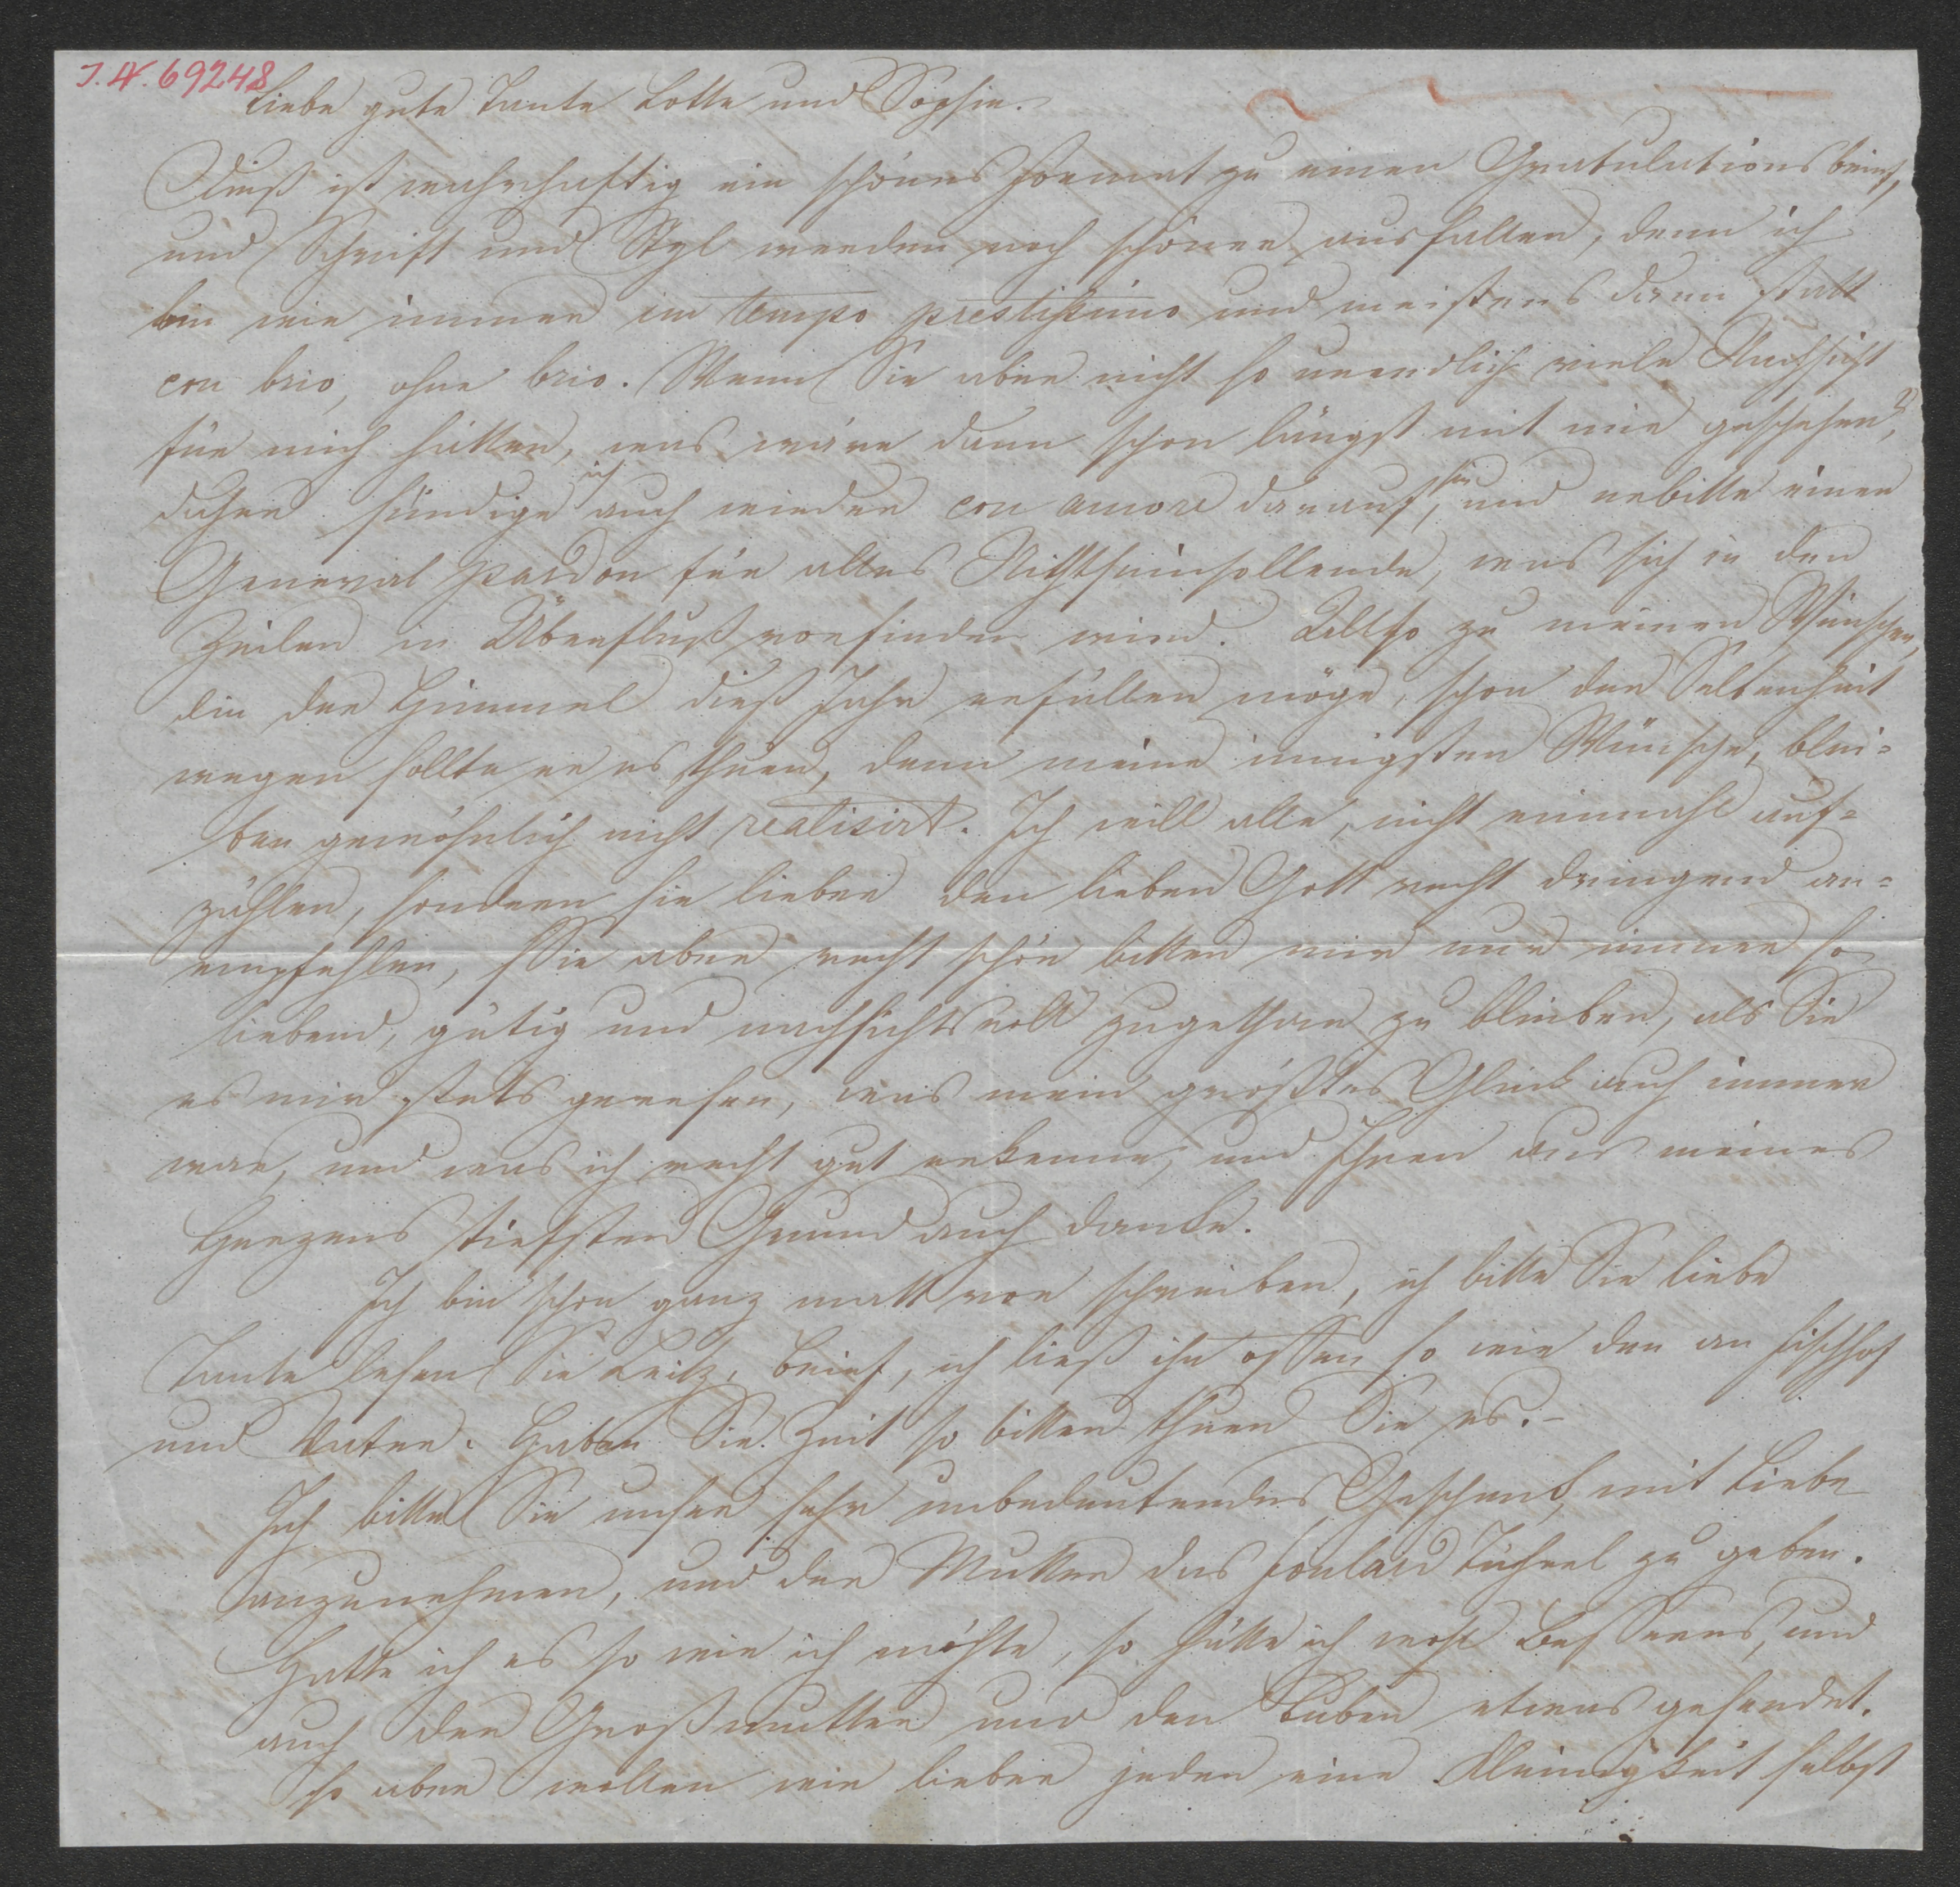 I. N. 69248
Liebe gute Tante Lotte und Sophie.
Dieß ist wahrhaftig ein schönes Format zu einen Gratulationsbrief,
und Schrift und Styl werden noch schöner ausfallen, denn ich
bin wie immer im tempo prestissimo und meistens dann statt
con brio, ohne brio. Wenn Sie aber nicht so unendlich viele Nachsicht
für mich hätten, was wäre dann schon längst mit mir geschehen?,
daher sündige ich auch wieder con amore darauf hin, und erbitte einen
General Pardon für alles Nichtseinsollende, was sich in den
Zeilen in Überfluß vorfinden wird. Allso zu meinen Wünschen,
die der Himmel dieß Jahr erfüllen möge, schon der Seltenheit
wegen sollte er es thuen, denn meine innigsten Wünsche, blei=
ben gewöhnlich nicht realisirt. Ich will alle, nicht einmahl auf=
zählen, sondern sie lieber den lieben Gott recht dringend an=
empfehlen, Sie aber recht schön bitten mir nur immer so
liebend, gütig und nachsichtsvoll zugethan zu bleiben, als Sie
es mir stets gewesen, was mein größtes Glück auch immer
war, und was ich recht gut erkenne, und Ihnen aus meines
Herzens tiefsten Grund auch danke.
Ich bin schon ganz matt vor schreiben, ich bitte Sie liebe
Tante lesen Sie Brief, ich ließ ihn offen so wie den an Fischhof
und Vater. Haben Sie Zeit so bitten thuen Sie es.-
Ich bitte Sie unser sehr unbedeutendes Geschenk, mit Liebe
anzunehmen, und der Mutter das foulard Tüchel zu geben.
Hätte ich es so wie ich möchte, so hätte ich wohl Besseres, und
auch der Großmutter und den Buben etwas gesendet.
So aber wollen wir lieber jeden eine Kleinigkeit selbst